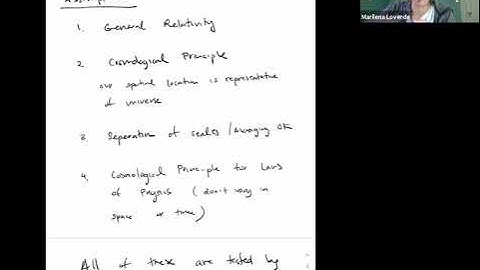 Assumptions
1. General Relativity
2. Cosmological Principle
our spatial location is representative
of universe
3. Separation of scales / Averaging OK
4. Cosmological Principle for Laws
of Physics (don't vary in
space or time)
All of these are tested by
Marilena Loverde